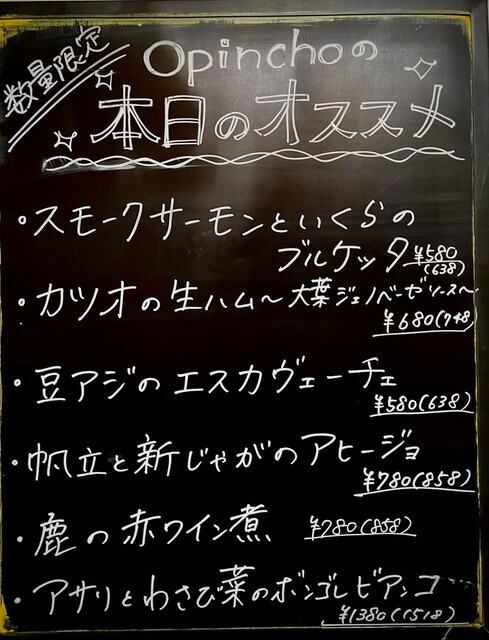 数量限定
Opinchoの
本日のオススメ
・スモークサーモンといくらの
ブルケッタ ¥580
(638)
・カツオの生ハム〜大葉ジェノベーゼソース〜
¥680(748)
・豆アジのエスカヴェーチェ
¥580(638)
・帆立と新じゃがのアヒージョ
¥780(858)
・鹿の赤ワイン煮 ¥780(858)
・アサリとわさび菜のボンゴレビアンコ
¥1380(1518)